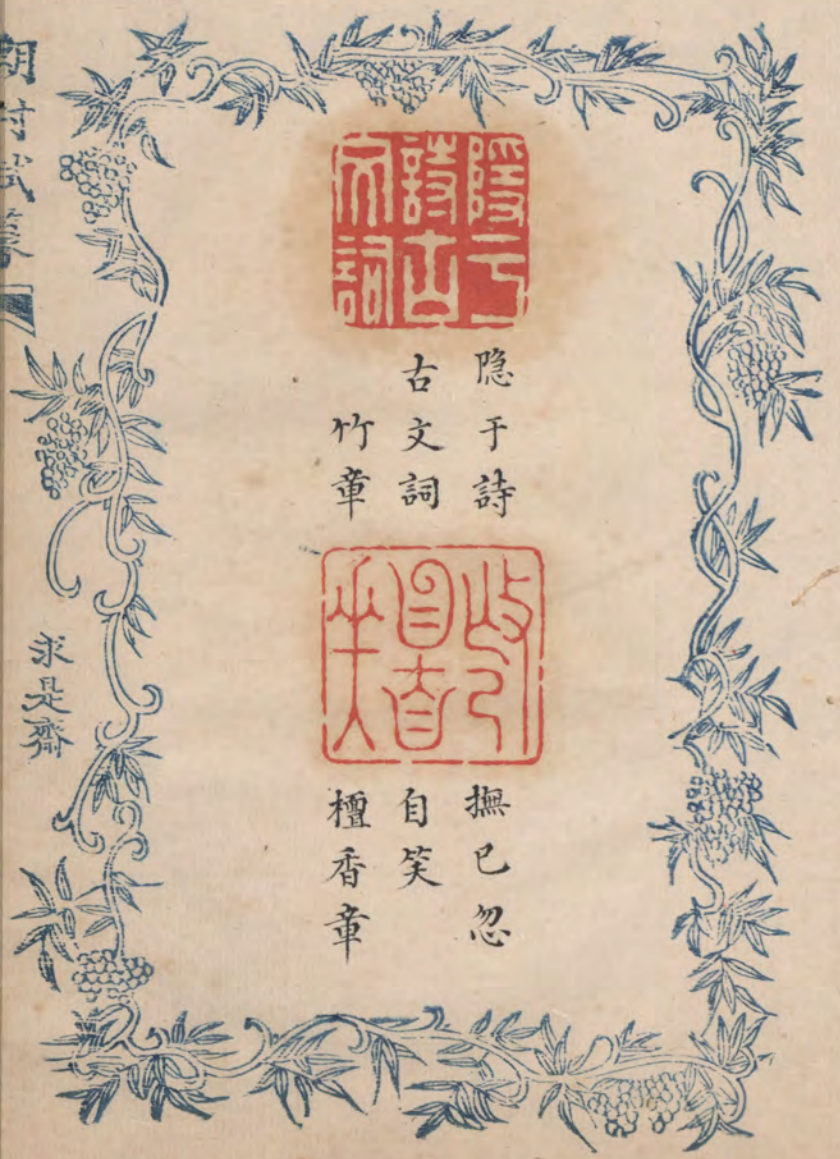 隱于詩古文詞
隐于詩
古文詞
竹章
撫己忽自笑
撫已忽
自笑
檀香章
求是齋